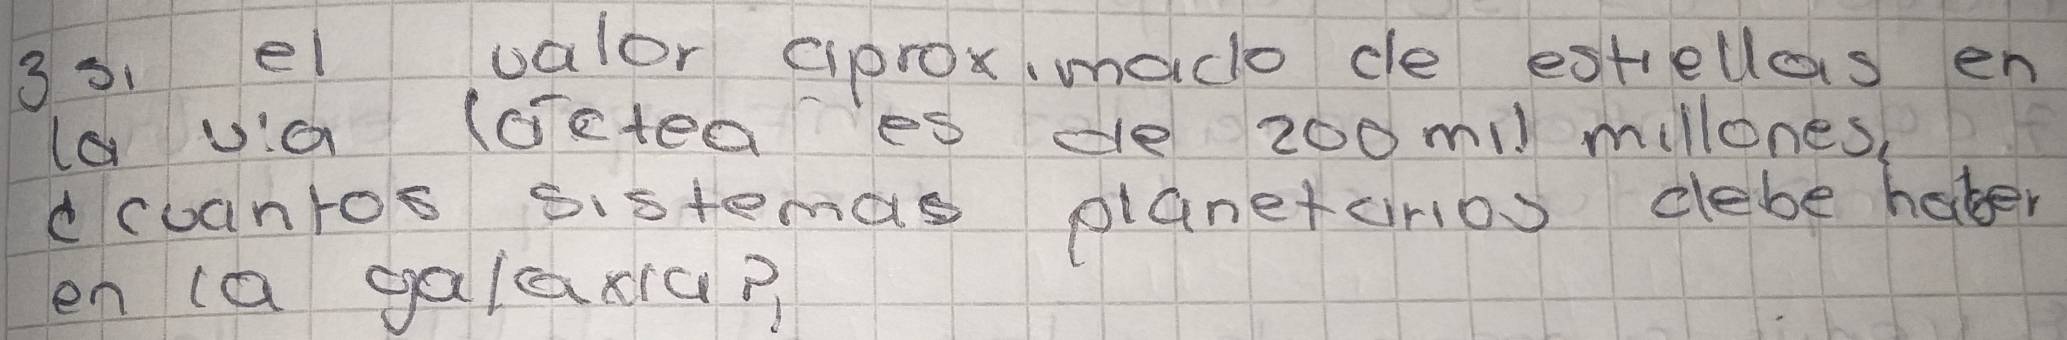 3 si el valor aproximado de estrellas en
la via láctea es de 200 mil millones,
¿cuantos sistemas planetarios debe haber
en la galaxia?,